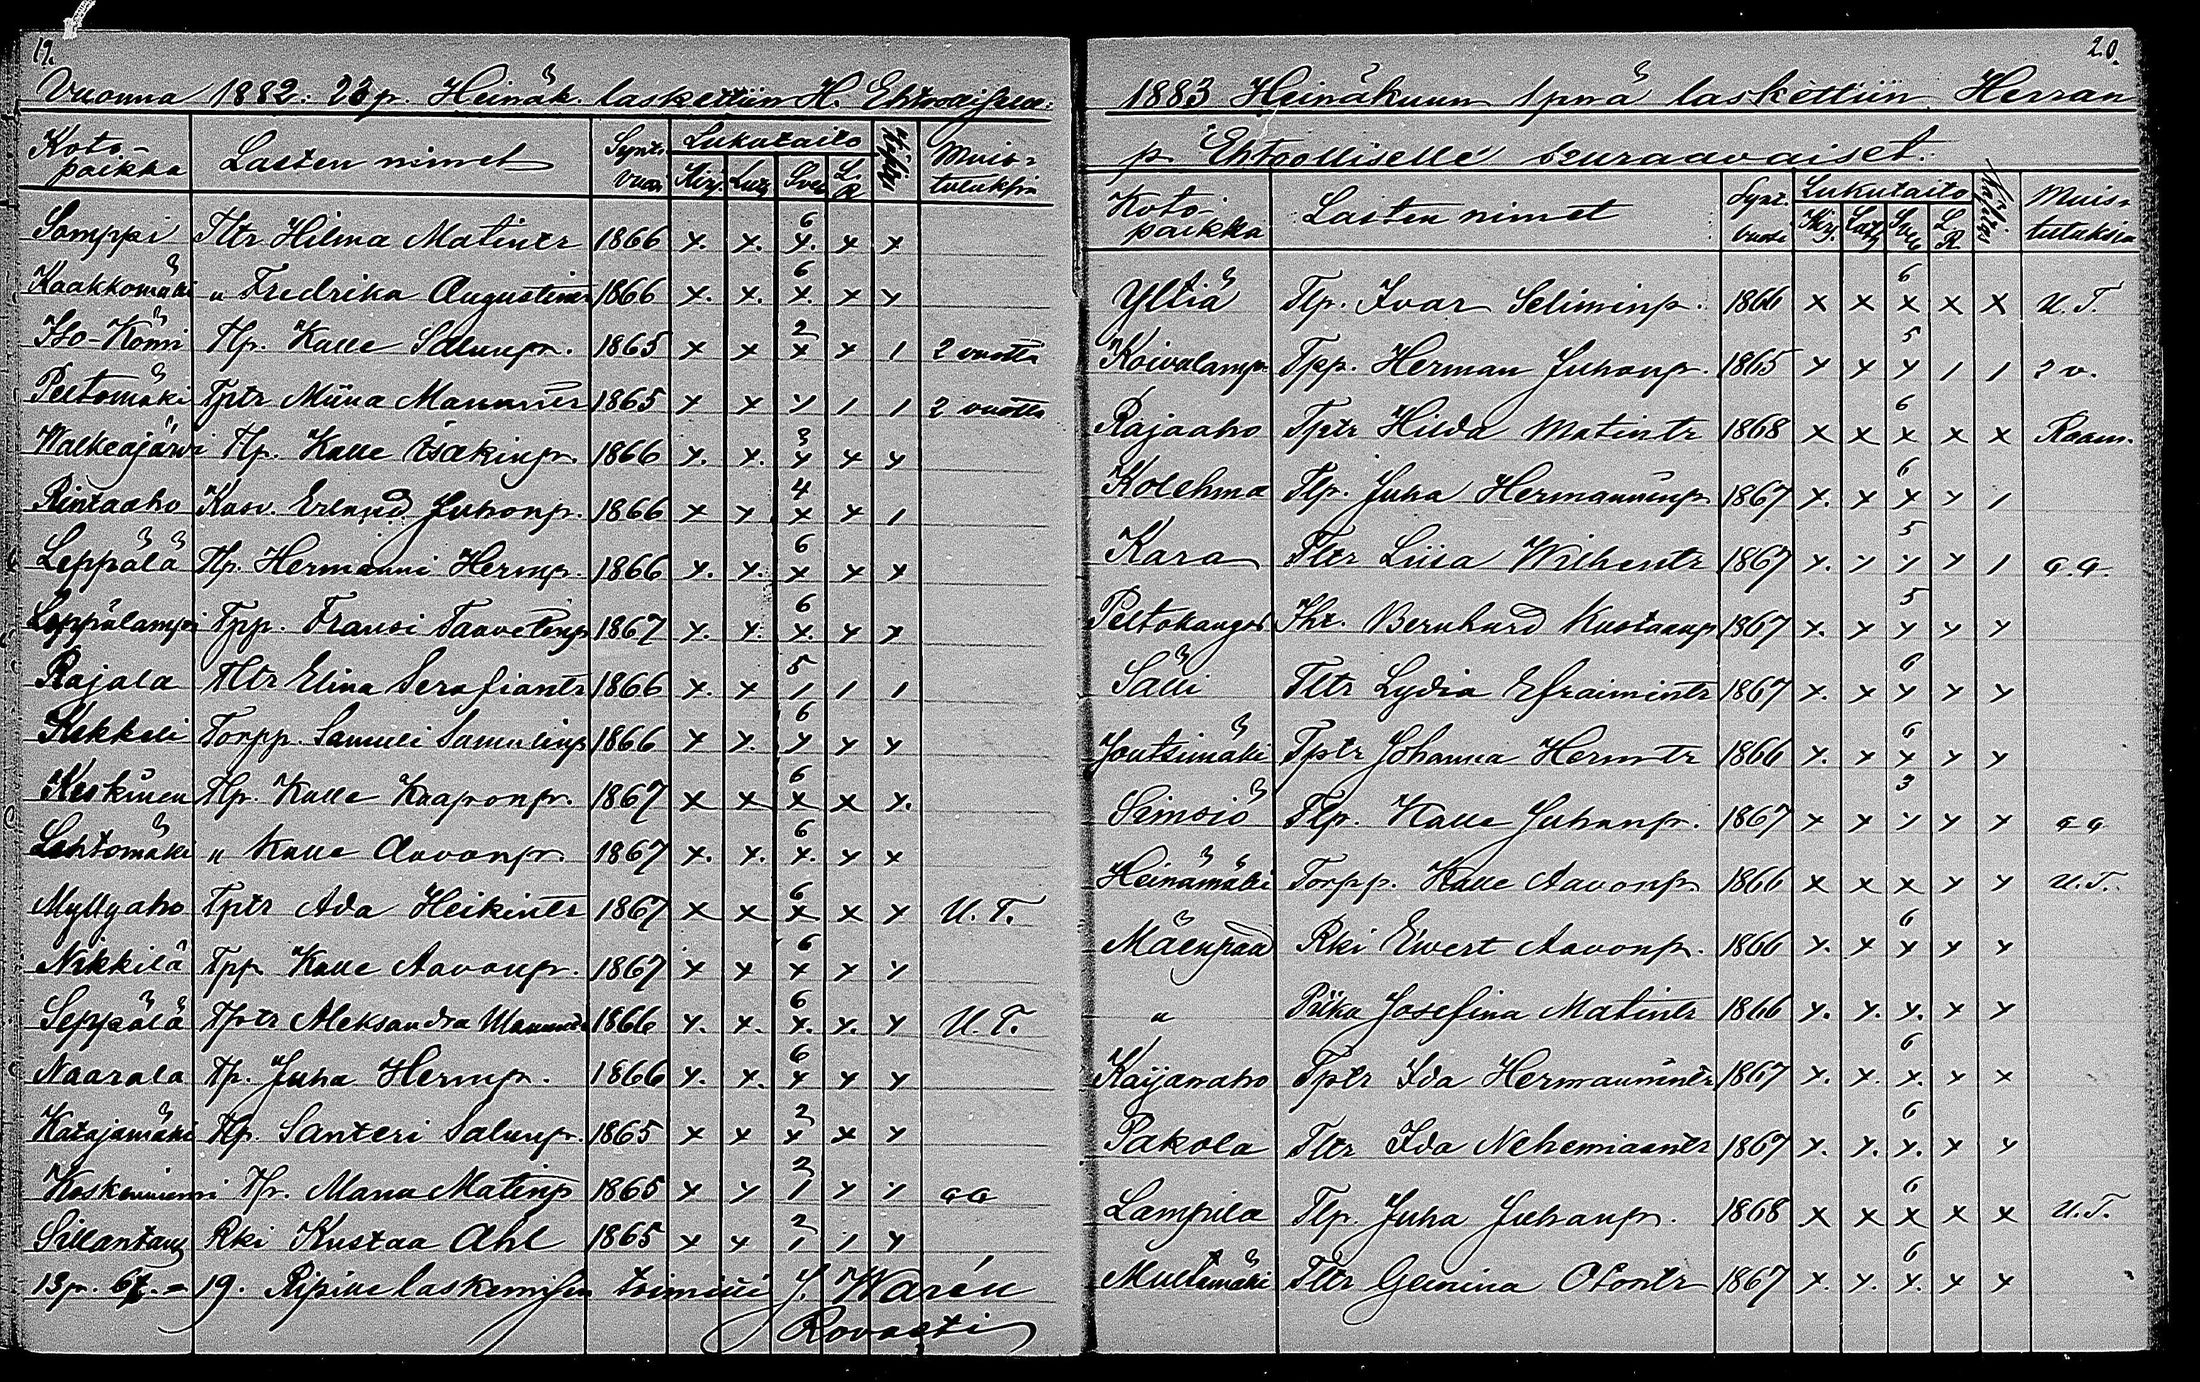 19.
Vuonna 1882: 23 p. Heinäk. laskettiin H. Ehtoolliselle:
Koto-paikka Lasten nimet Synt. vuosi Lukutaito Kirj. Lutz. Sveb. L. R. Käsitys Muis-tutuksia
Somppi Tltr Hilma Matintr 1866 x. x. 6 x. x x
Kaakkomäki " Fredrika Augustintr 1866 x. x. 6 x. x x
Iso-Kömi Tlp. Kalle Salunp. 1865 x x 2 x x 1 2 vuotta
Peltomäki Tptr Miina Mannintr 1865 x x x 1 1 2 vuotta
Walkeajärvi Tlp. Kalle Isakinp. 1866 x. x. 3 x x x
Rintaaho Kasv. Erland Juhonp. 1866 x x 4 x x 1
Leppälä Tlp. Hermanni Hermp. 1866 x. x. 6 x x x
Leppälampi Tpp. Fransi Taavetinp 1867 x. x. 6 x. x x
Rajala Tltr Elina Serafiantr 1866 x. x 5 1 1 1
Kekkeli Torpp. Samuli Samulinp 1866 x x. 6 x x x
Keskinen Tlp. Kalle Kaaponp. 1867 x x 6 x x x.
Lehtomäki " Kalle Aavonp. 1867 x. x. 6 x. x x
Myllyaho Tptr Ada Heikintr 1867 x x 6 x x x U. T.
Nikkilä Tpp Kalle Aavonp. 1867 x x 6 x x x
Seppälä Tptr Aleksandra 1866 x. x. 6 x. x. x U. T.
Naarala Tlp. Juha Hermp. 1866 x. x. 6 x x x
Katajamäki Tlp. Santeri Salunp. 1865 x x 2 x x x
Koskenniemi Tlp. Manu Matinp 1865 x x 2 1 x x aa
Sillantaus Rki Kustaa Ahl 1865 x x 2 1 1 x
13 p. 6 t. = 19. Ripille laskemisen toimitti J. Warén
Rovasti
20.
1883 Heinäkuun 1 pnä laskettiin Herran
p. Ehtoolliselle seuraavaiset.
Koto-paikka Lasten nimet Synt. vuosi Lukutaito Kirj. Lutz Sveb L. R. Käsitys Muis-tutuksia
Yltiä Tlp. Ivar Seliminp. 1866 x x 6 x x x U. T.
Koivalamp. Tpp. Herman Juhonp. 1865 x x 5 x 1 1 2 v.
Rajaaho Tptr Hilda Matintr 1868 x x 6 x x x Raam.
Kolehma Tlp. Juha Hermanninp 1867 x. x 6 x x 1
Kara Tltr Liisa Wilhentr 1867 x. x 5 x x 1 a.a.
Peltokangas Thr. Bernhard Kustaanp 1867 x. x 5 x x x
Sälli Tltr Lydia Efraimintr 1867 x. x 6 x x x
Joutsimäki Tptr Johanna Hermtr 1866 x. x 6 x x x
Simsiö Tlp. Kalle Juhanp. 1867 x x 3 x x x aa
Heinämäki Torpp. Kalle Aavonp 1866 x x x x x U. T.
Mäenpää Rki Ewert Aavonp. 1866 x. x 6 x x x
" Piika Josefina Matintr 1866 x. x. x. x x
Kaijanaho Tptr Ida Hermannintr 1867 x. x. 6 x. x x
Pakola Tltr Ida Nehemiaantr 1867 x. x. 6 x. x x
Lampila Tlp. Juha Juhanp. 1868 x x 6 x x x U. T.
Multamäki Tltr Gemina Otontr 1867 x. x. 6 x. x x